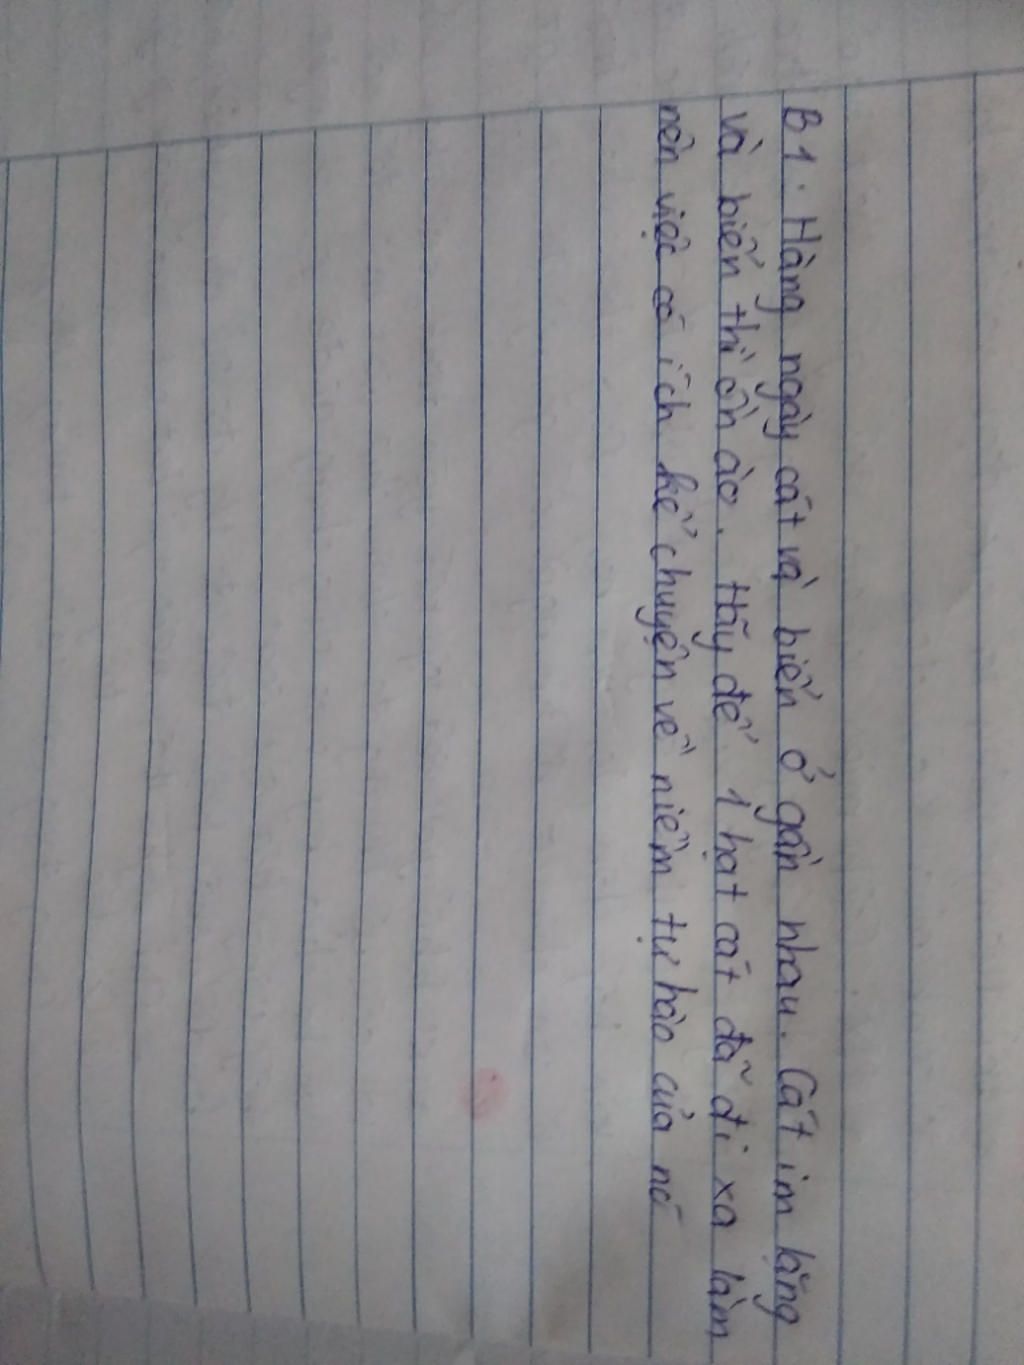 B1. Hàng ngày cát và biển ở gần nhau. Cát im lặng
và biển thì ồn ào. Hãy để 1 hạt cát đã đi xa làm
nên việc có ích kể chuyện về niềm tự hào của nó